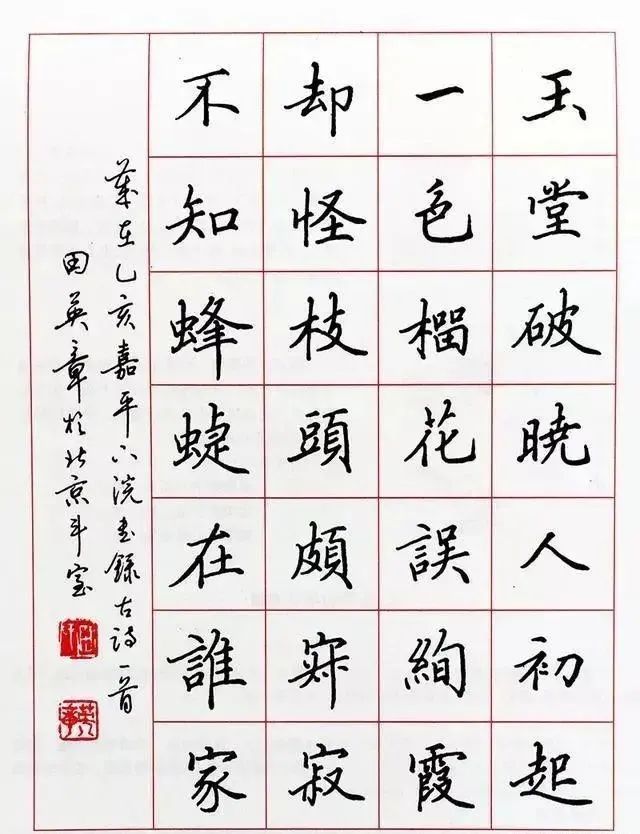 玉堂破曉人初起
一色榴花誤絢霞
却怪枝頭頗寂寂
不知蜂蜨在誰家
歲在乙亥嘉平下浣書錄古詩一首
田英章於北京斗室